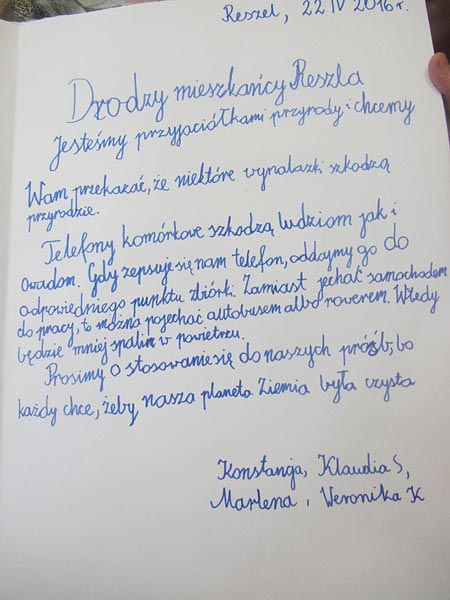 Reszel, 22 IV 2016 r.
Drodzy mieszkańcy Reszla
Jesteśmy przyjaciółkami przyrody i chcemy
Wam przekazać, że niektóre wynalazki szkodzą
przyrodzie.
Telefony komórkowe szkodzą ludziom jak i
owadom. Gdy zepsuje się nam telefon, oddajmy go do
odpowiedniego punktu zbiórki. Zamiast jechać samochodem
do pracy, to można pojechać autobusem albo rowerem. Wtedy
będzie mniej spalin w powietrzu.
Prosimy o stosowanie się do naszych próśb, bo
każdy chce, żeby nasza planeta Ziemia była czysta
Konstancja, Klaudia S,
Marlena, Weronika K